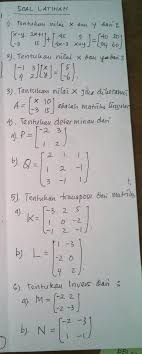 SOAL LATIHAN
1) Tentukan nilai x dan y dari :
2) Tentukan nilai x dan y dari :
[-1 3] [x] = [5]
[4 2] [y] [-6]
3) Tentukan nilai x jika diketahui
A = [x 10] adalah matriks singular
[-3 15]
4) Tentukan determinan dari
a) P = [-2 3]
b) Q = [2 1 1]
[1 2 -1]
[3 -1 1]
5) Tentukan transpose dari matriks
a) K = [-3 2 5]
[1 0 -2]
[-1 2 -1]
b) L = [1 -3]
[-2 0]
[4 2]
6) Tentukan Invers dari :
a) M = [-2 2]
[-2 -3]
b) N = [-2 -3]
[1 -1]